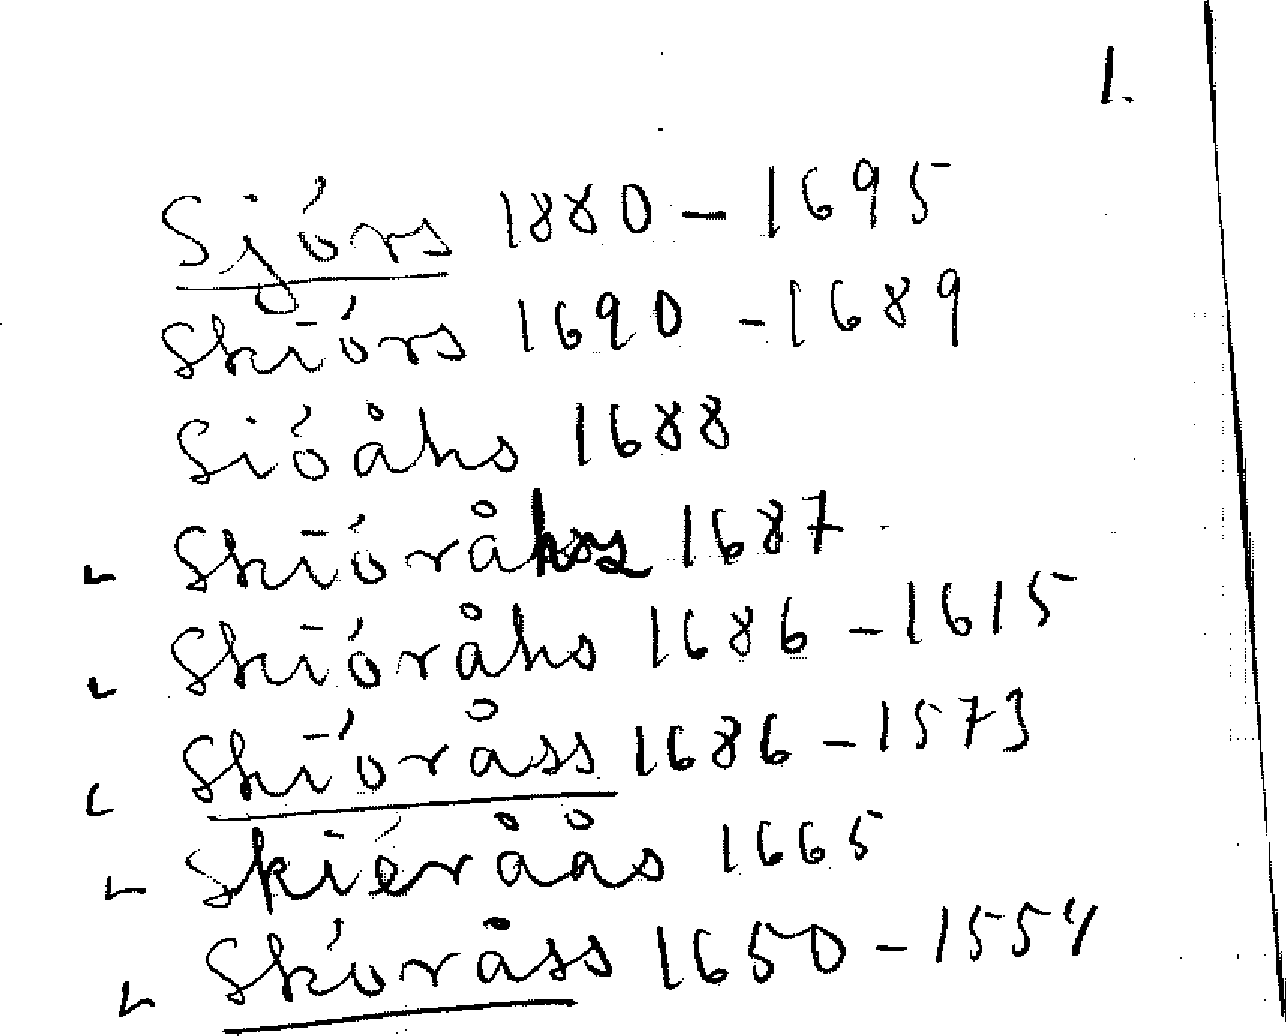 1.
Sjórs 1880 – 1695
Skiórs 1690 – 1689
Sióåhs 1688
Skióråhs 1687
Skióråhs 1686 – 1615
Skióråss 1686 – 1573
Skiéråås 1665
Skóråss 1650 – 1554